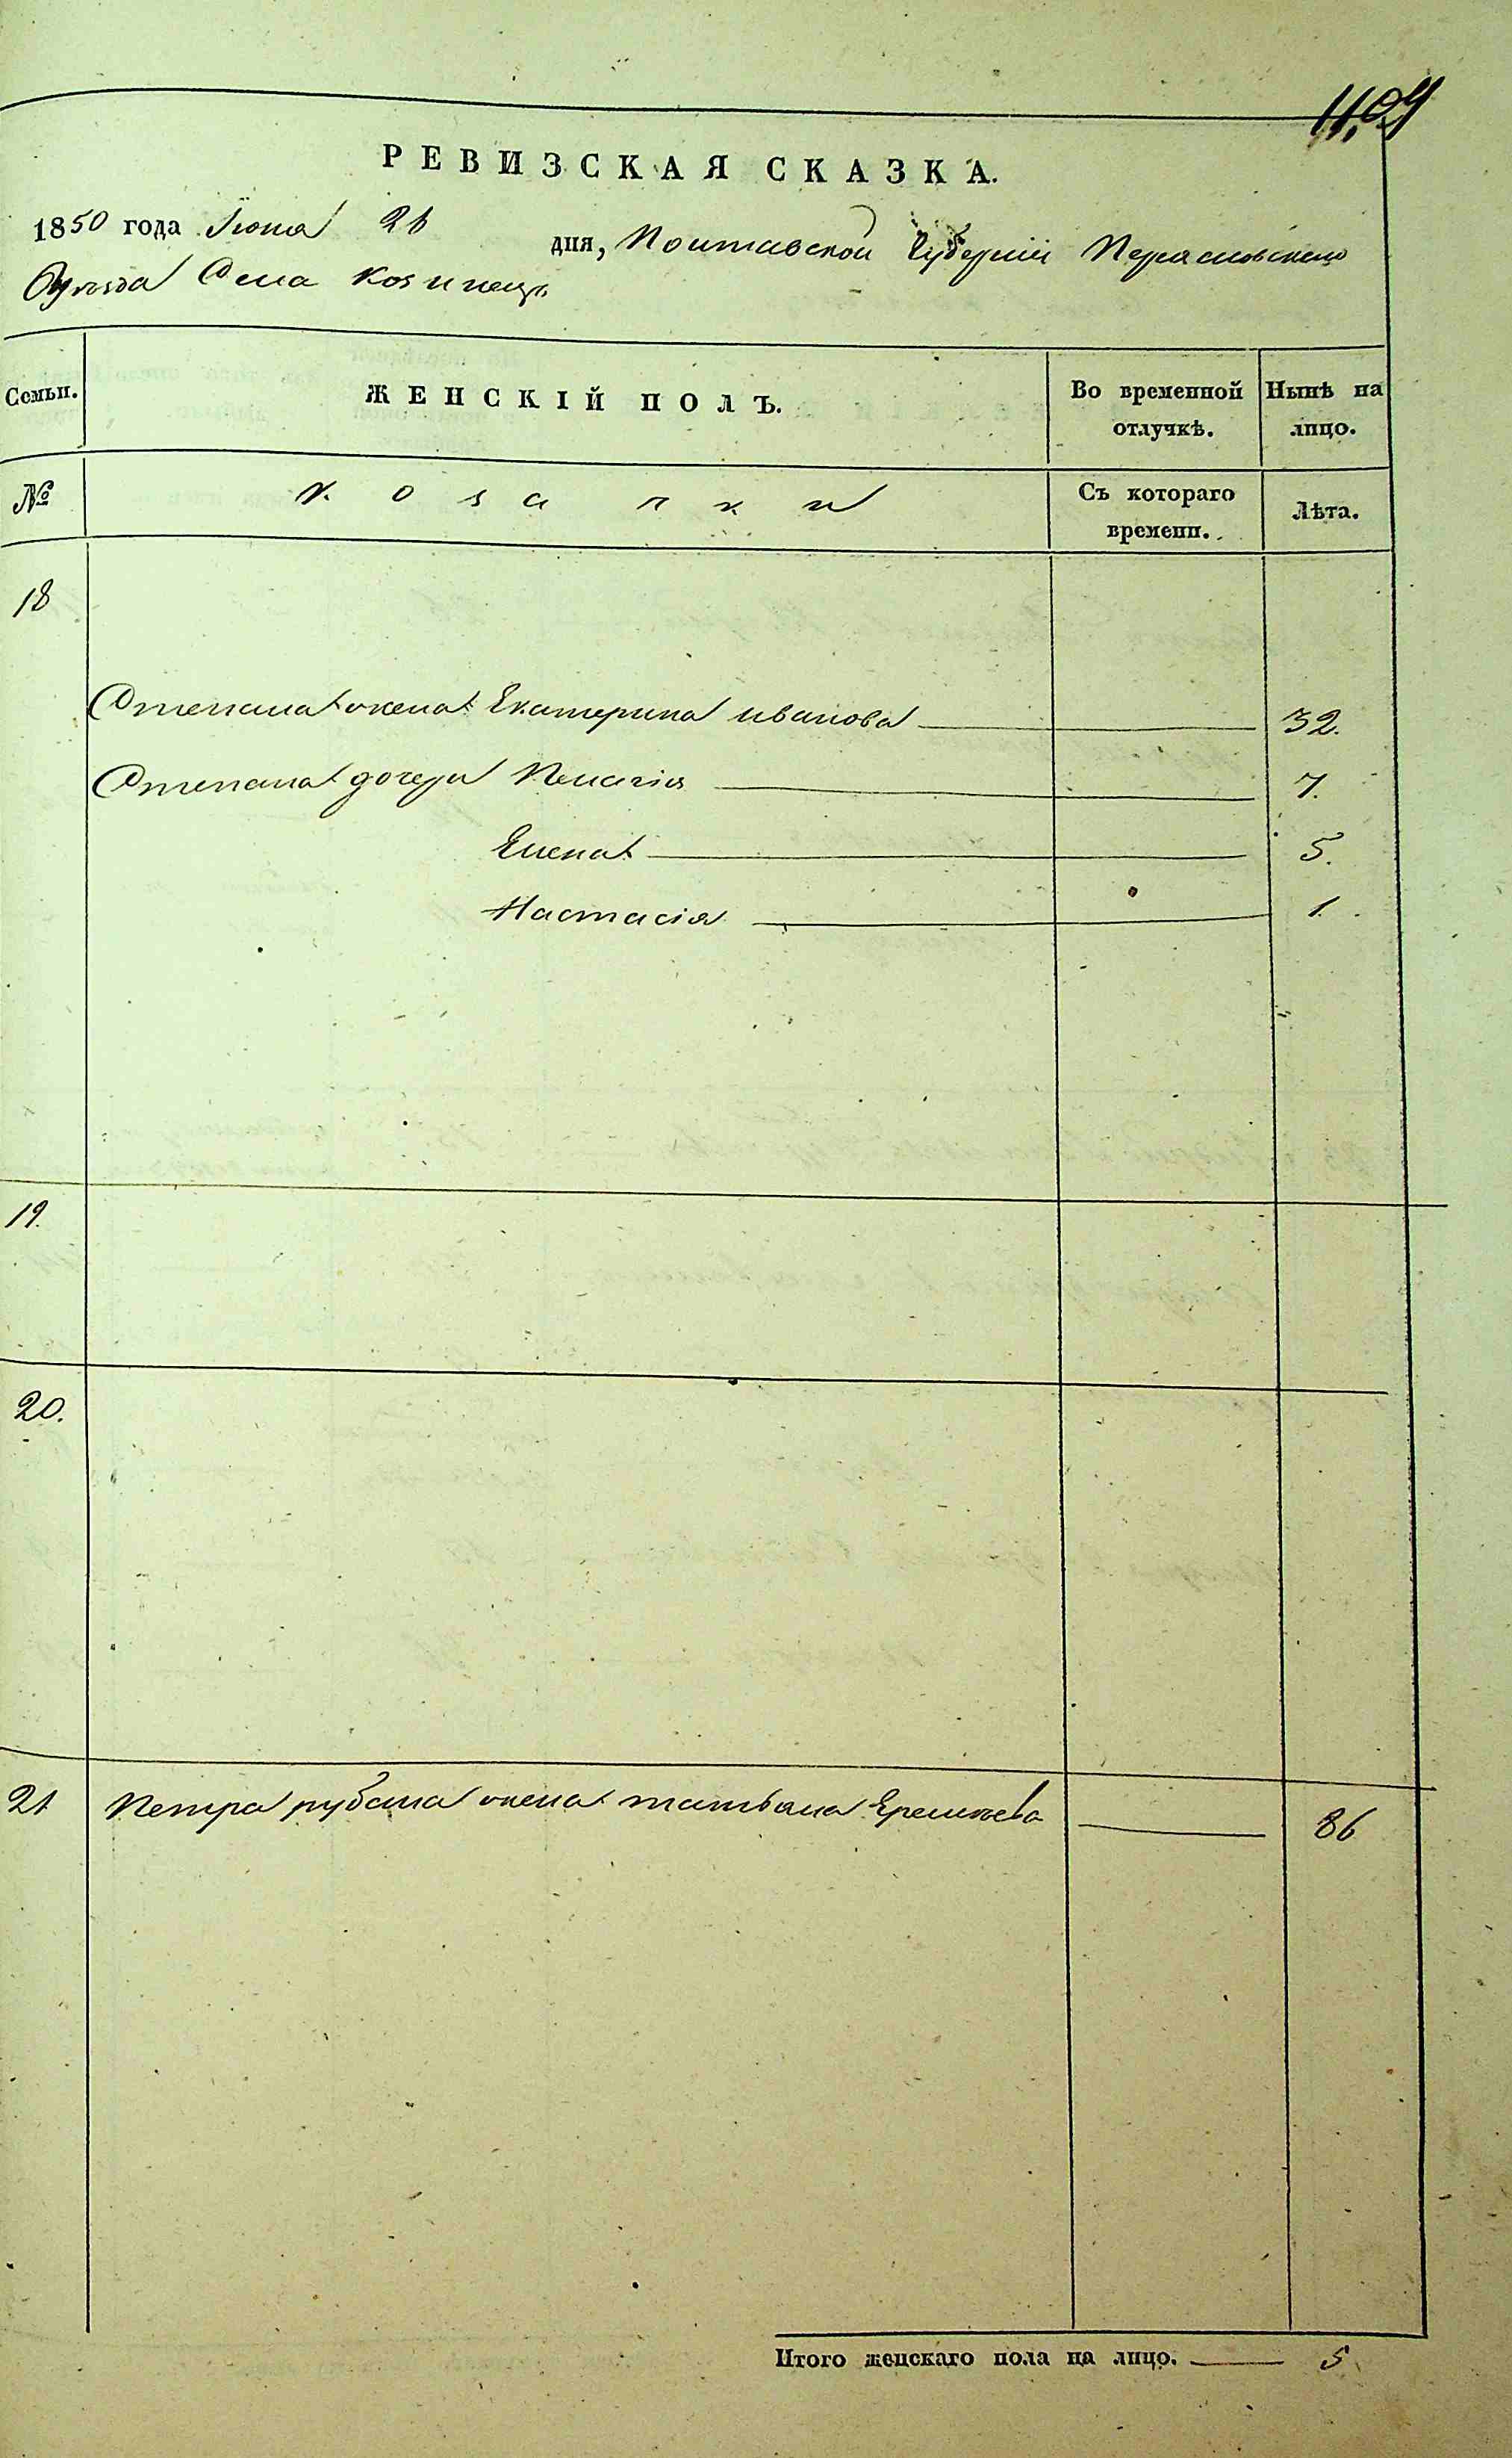 РЕВИЗСКАЯ СКАЗКА.
1850 года Іюня 26 дня, Полтавской Губерніи Переясловскаго
Оуезда Села Козинецъ
Семьи. ЖЕНСКІЙ ПОЛЪ. Во временной отлучкѣ. Нынѣ на лицо.
№ козачки Съ котораго времени. Лѣта.
18
Степана жена Екатерина иванова 32.
Степана дочери Пелагія 7.
Елена 5.
Настасія 1.
19.
20.
21 Петра рубана жена татьяна Еремѣева 86
Итого женскаго пола на лицо. 5